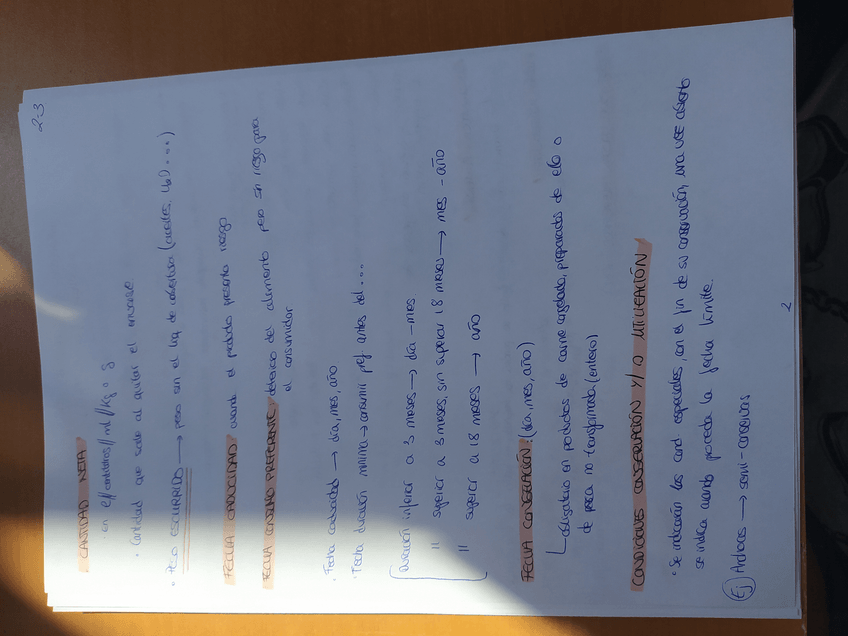 2.3
· CANTIDAD NETA
· en l//centilitros//ml//Kg o g
· Cantidad que sale al quitar el envase
· PESO ESCURRIDO → peso sin el líq. de cobertura
FECHA CADUCIDAD cuando el producto presenta riesgo
FECHA CONSUMO PREFERENTE deterioro del alimento pero sin riesgo para
el consumidor
· Fecha caducidad → día, mes, año
· Fecha duración mínima → consumir pref antes del ....
duración inferior a 3 meses → día - mes
" superior a 3 meses, sin superar 18 meses → mes - año
" superior a 18 meses → año
FECHA CONGELACIÓN: (día, mes, año)
obligatorio en productos de carne congelada, preparados de ello o
de pesca no transformada (entero)
CONDICIONES CONSERVACIÓN Y/O UTILIZACIÓN
· Se indicarán las cond especiales, con el fin de su conservación, una vez abierto
se indica cuando proceda la fecha límite.
Ej Anchoas → semi-conservas
2